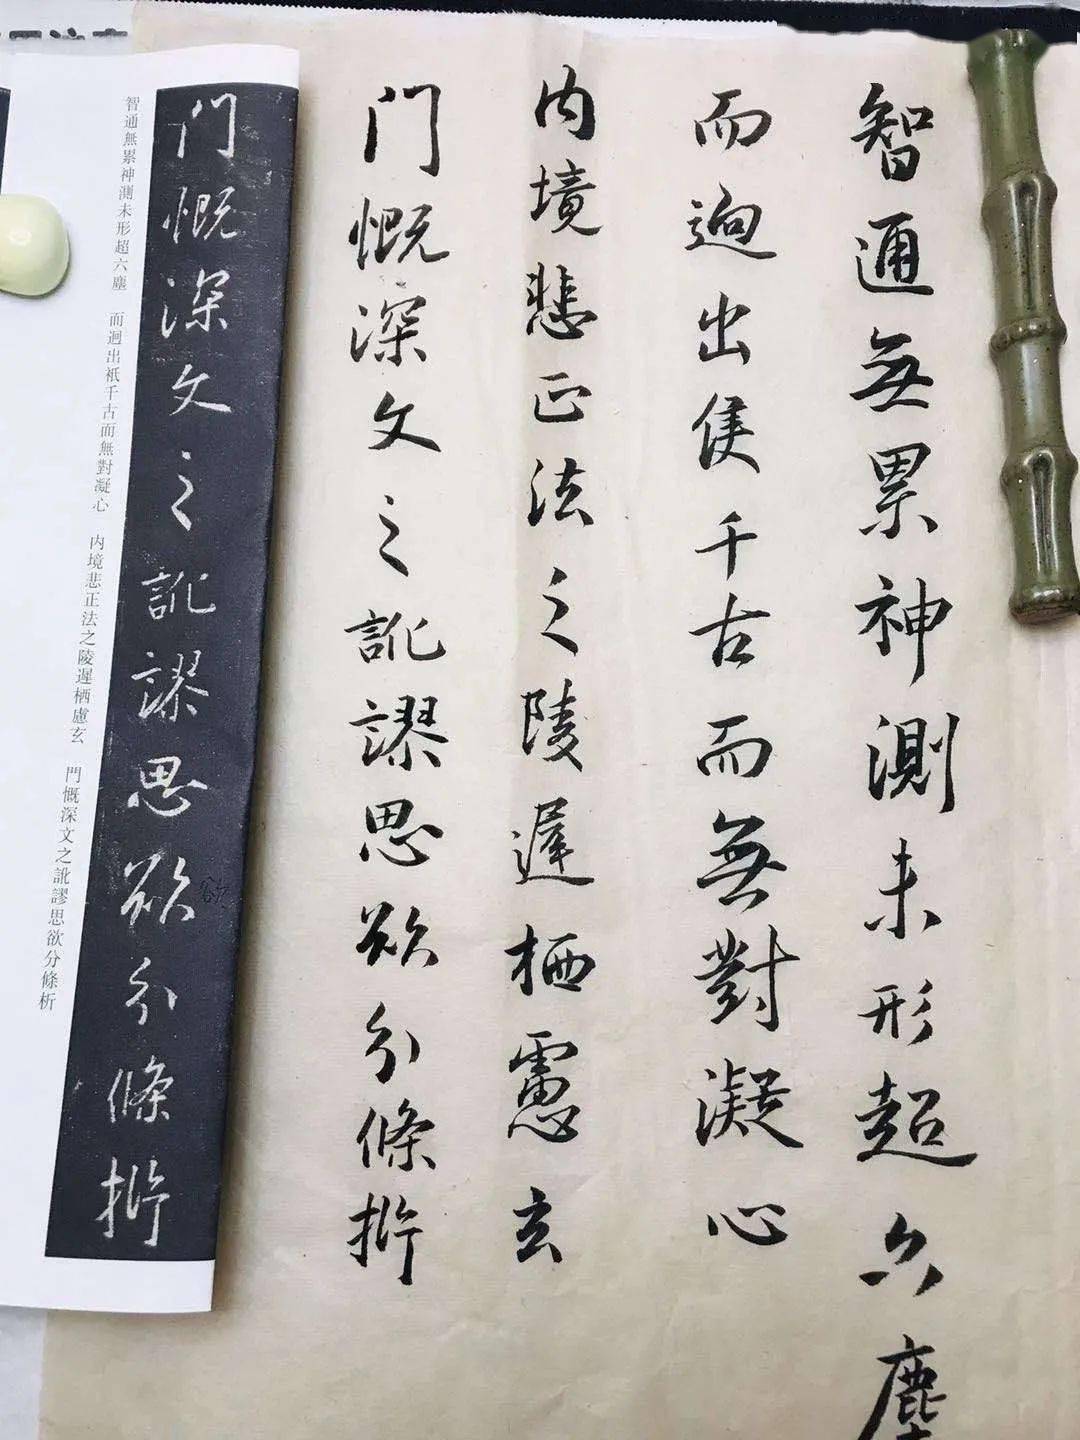 智通無累神測未形超六塵
而迥出隻千古而無對凝心
内境悲正法之陵遲栖慮玄
門慨深文之訛謬思欲分條析
門慨深文之訛謬思欲分條析
智通無累神測未形超六塵 而迥出袛千古而無對凝心 内境悲正法之陵遲栖慮玄 門慨深文之訛謬思欲分條析